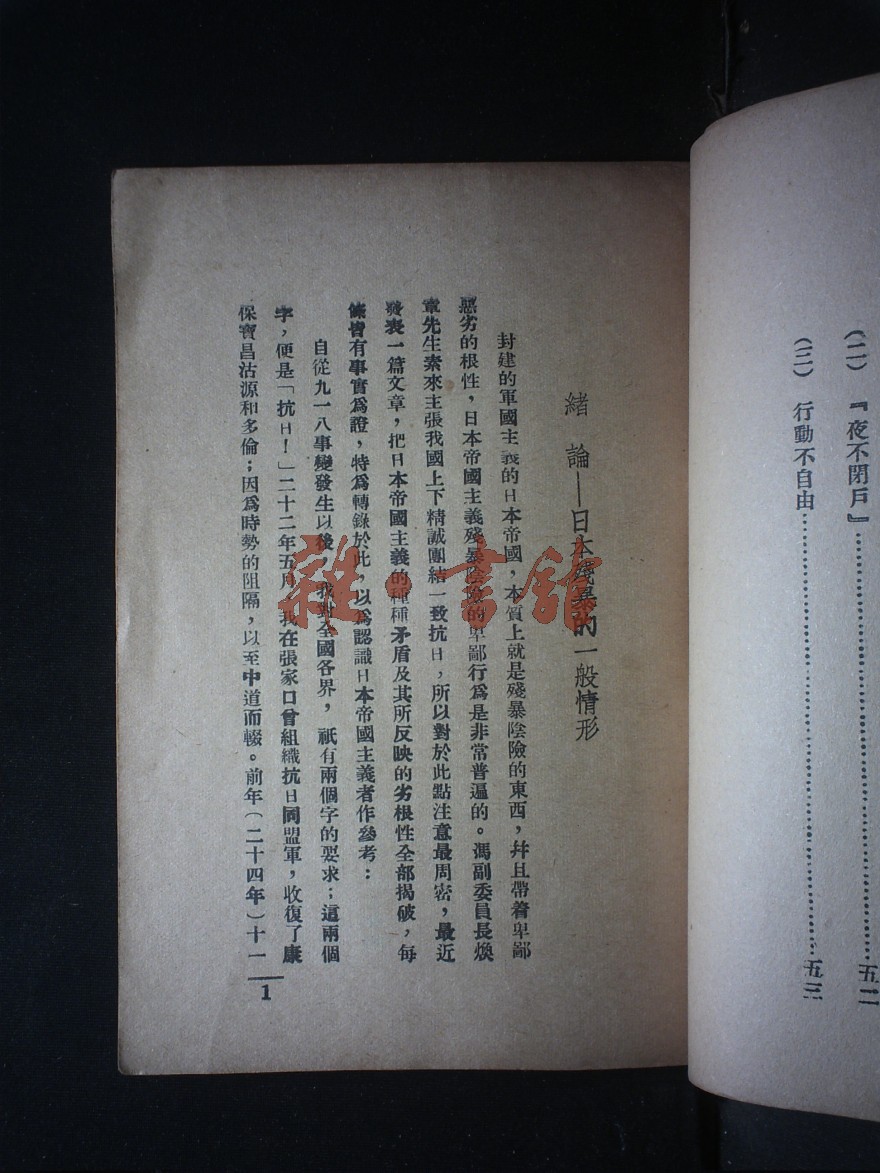 (二) 『夜不閉戶』……………………五二
(三) 行動不自由……………………五三
緒論——日本殘暴的一般情形
封建的軍國主義的日本帝國，本質上就是殘暴陰險的東西，幷且帶着卑鄙
惡劣的根性，日本帝國主義殘暴陰險的卑鄙行爲是非常普遍的。馮副委員長煥
章先生素來主張我國上下精誠團結一致抗日，所以對於此點注意最周密，最近
發表一篇文章，把日本帝國主義的種種矛盾及其所反映的劣根性全部揭破，每
條皆有事實爲證，特爲轉錄於此，以爲認識日本帝國主義者作參考：
自從九一八事變發生以後，我對全國各界，祇有兩個字的要求；這兩個
字，便是「抗日！」二十二年五月，我在張家口曾組織抗日同盟軍，收復了康
保寶昌沽源和多倫；因爲時勢的阻隔，以至中道而輟。前年(二十四年)十一
1
雜·書館